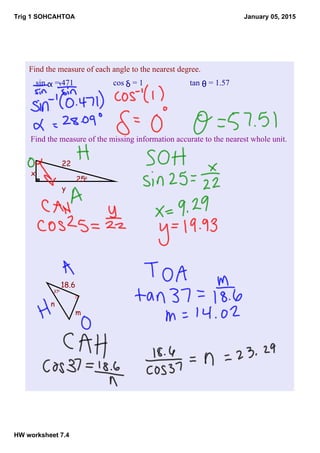 Trig 1 SOHCAHTOA January 05, 2015
Find the measure of each angle to the nearest degree.
sin α = .471 cos δ = 1 tan θ = 1.57
sin sin
sin⁻¹(0.471) cos⁻¹(1)
α = 28.09° δ = 0° θ = 57.51
Find the measure of the missing information accurate to the nearest whole unit.
O H SOH
22
x 25° sin 25 = x/22
y A
CAH x = 9.29
cos 25 = y/22 y = 19.93
A TOA
18.6 tan 37 = m/18.6
n
H m m = 14.02
O
CAH
cos 37 = 18.6/n 18.6/cos37 = n = 23.29
HW worksheet 7.4